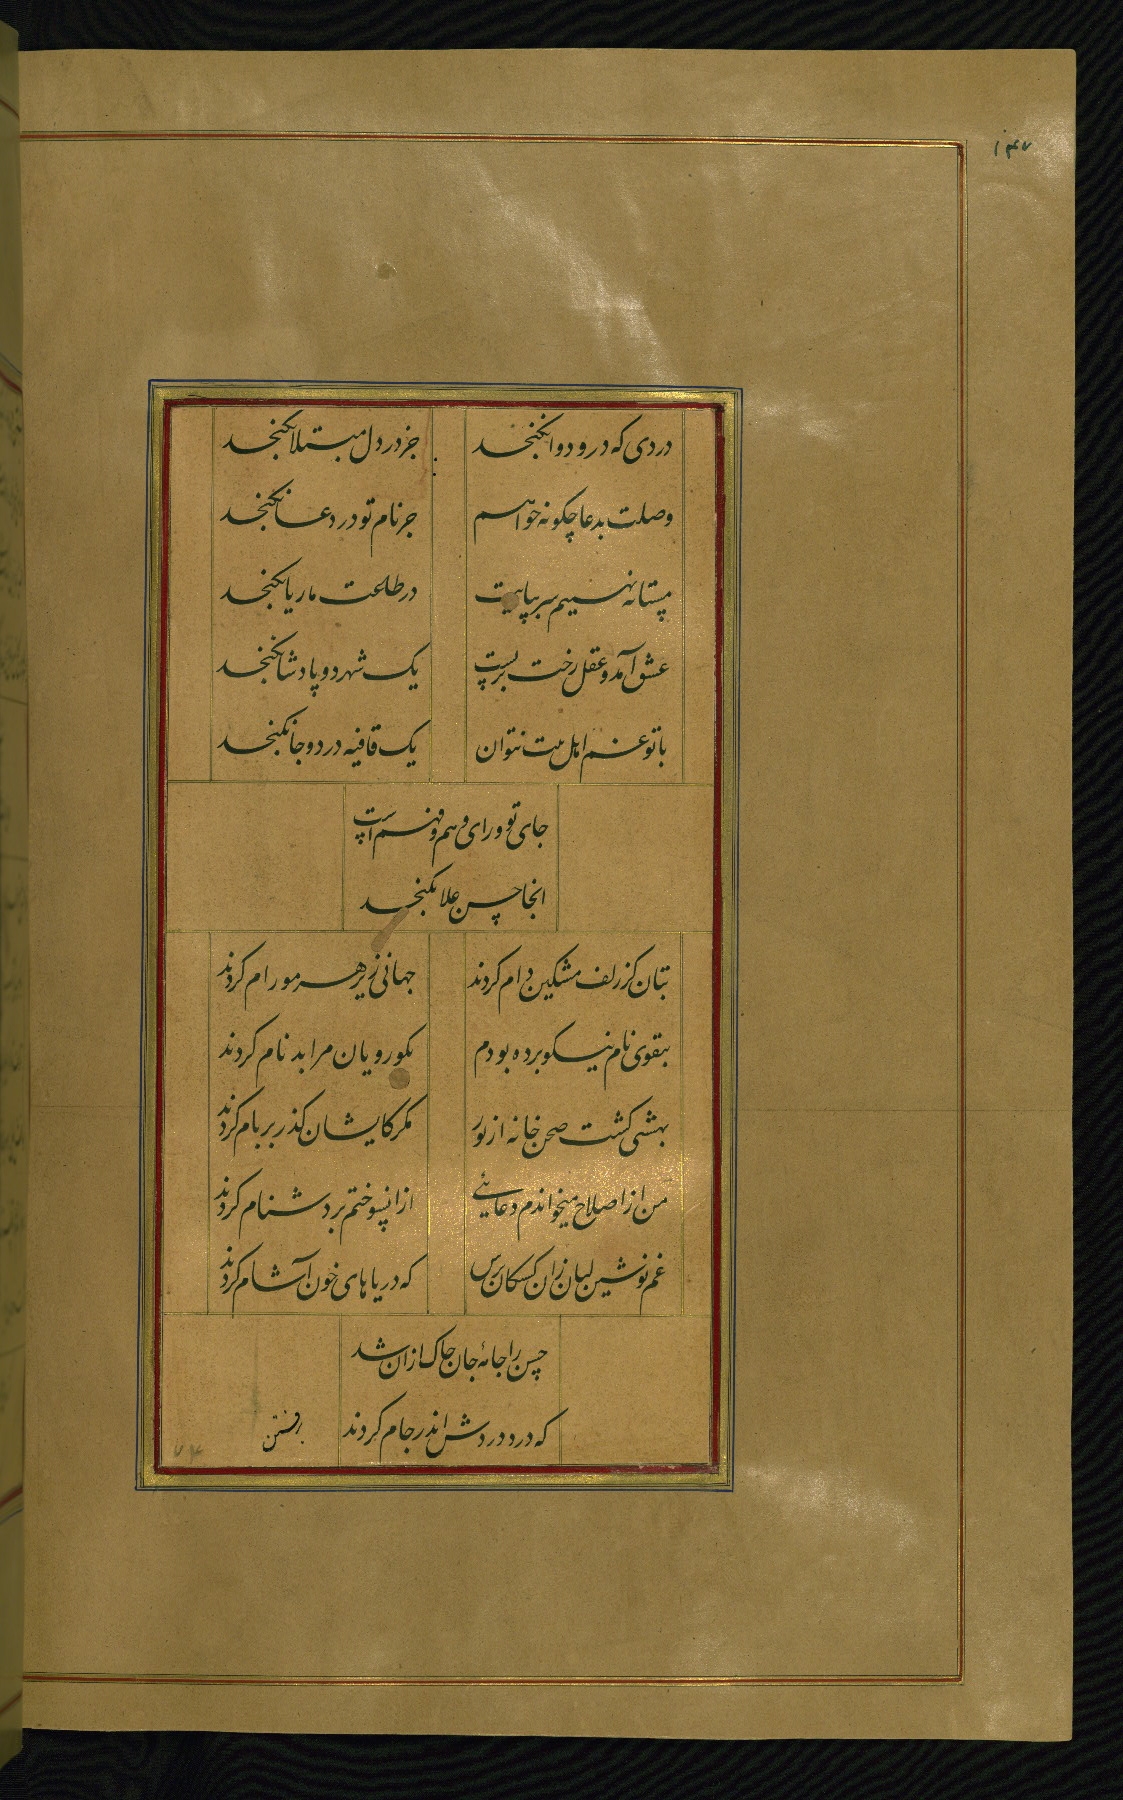 ۱۴۷
دردی که درو دوا نکنجد جز در دل مبتلا نکنجد
وصلت بدعا چکونه خواهم جز نام تو در دعا نکنجد
مستانه نهیم سر بپایت در طاعت ما ریا نکنجد
عشق آمد و عقل رخت بربست یک شهر دو پادشا نکنجد
با تو غم اهل بیت نتوان یک قافیه در دو جا نکنجد
جای تو ورای وهم و فهم است
انجا حسن علا نکنجد
بتان کز زلف مشکین دام کردند جهانی زیر هر مو رام کردند
بتقوی نام نیکو برده بودم نکورویان مرا بدنام کردند
بهشتی کشت صحن خانه از نور مکر کایشان کذر بر بام کردند
من از اصلاح میخواندم دعایئی ازانسو ختم بر دشنام کردند
غم نوشین لبان زان کسکان پرس که دریاهای خون آشام کردند
حسن را جامهٔ جان چاک ازان شد
که درد دردش اندر جام کردند
رفتن
۷۴